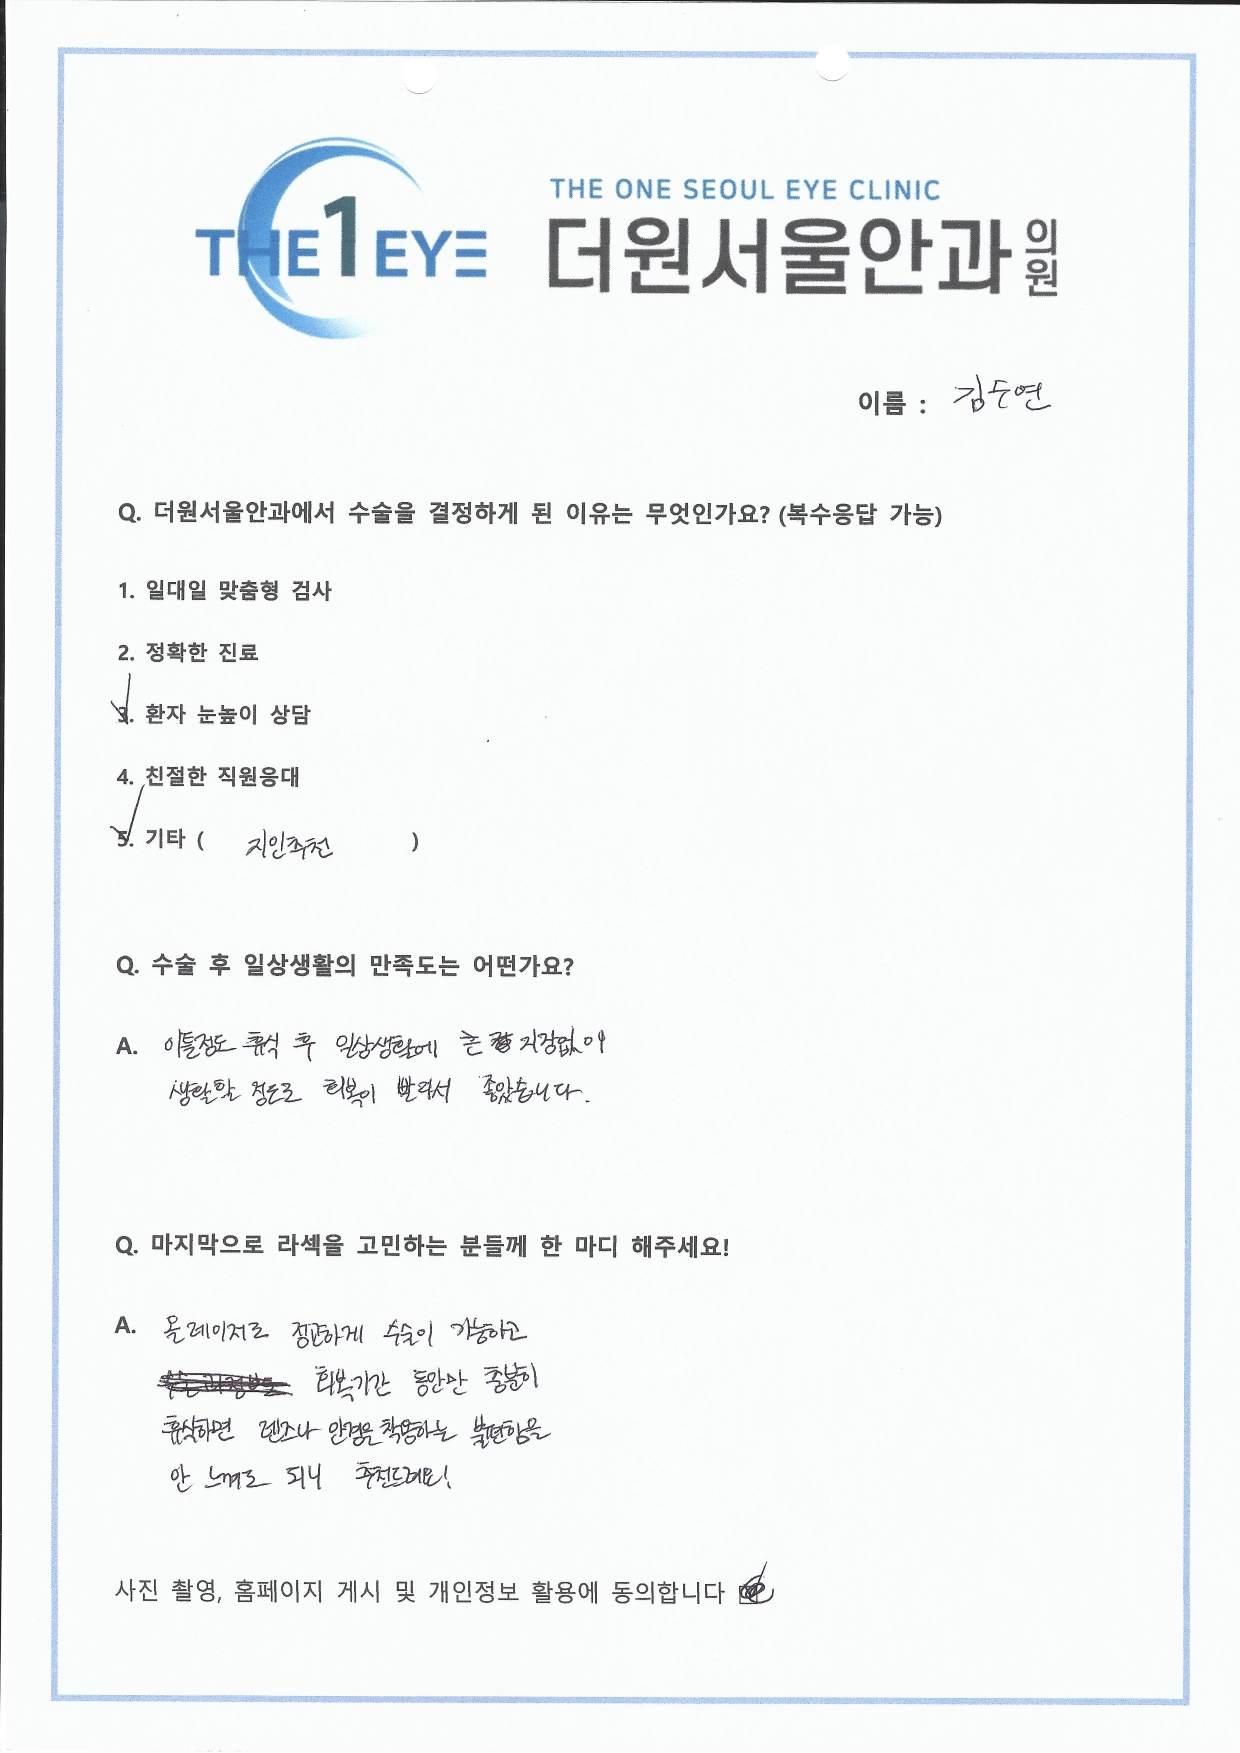 THE1EYE
THE ONE SEOUL EYE CLINIC
더원서울안과의원
이름 : 김수연
Q. 더원서울안과에서 수술을 결정하게 된 이유는 무엇인가요? (복수응답 가능)
1. 일대일 맞춤형 검사
2. 정확한 진료
3. 환자 눈높이 상담
4. 친절한 직원응대
5. 기타 ( 지인추천 )
Q. 수술 후 일상생활의 만족도는 어떤가요?
A. 이틀정도 휴식 후 일상생활에 큰 지장없이
생활할 정도로 회복이 빨라서 좋았습니다.
Q. 마지막으로 라섹을 고민하는 분들께 한 마디 해주세요!
A. 올레이저로 정교하게 수술이 가능하고
회복기간 동안만 충분히
휴식하면 렌즈나 안경을 착용하는 불편함을
안 느껴도 되니 추천드려요!
사진 촬영, 홈페이지 게시 및 개인정보 활용에 동의합니다